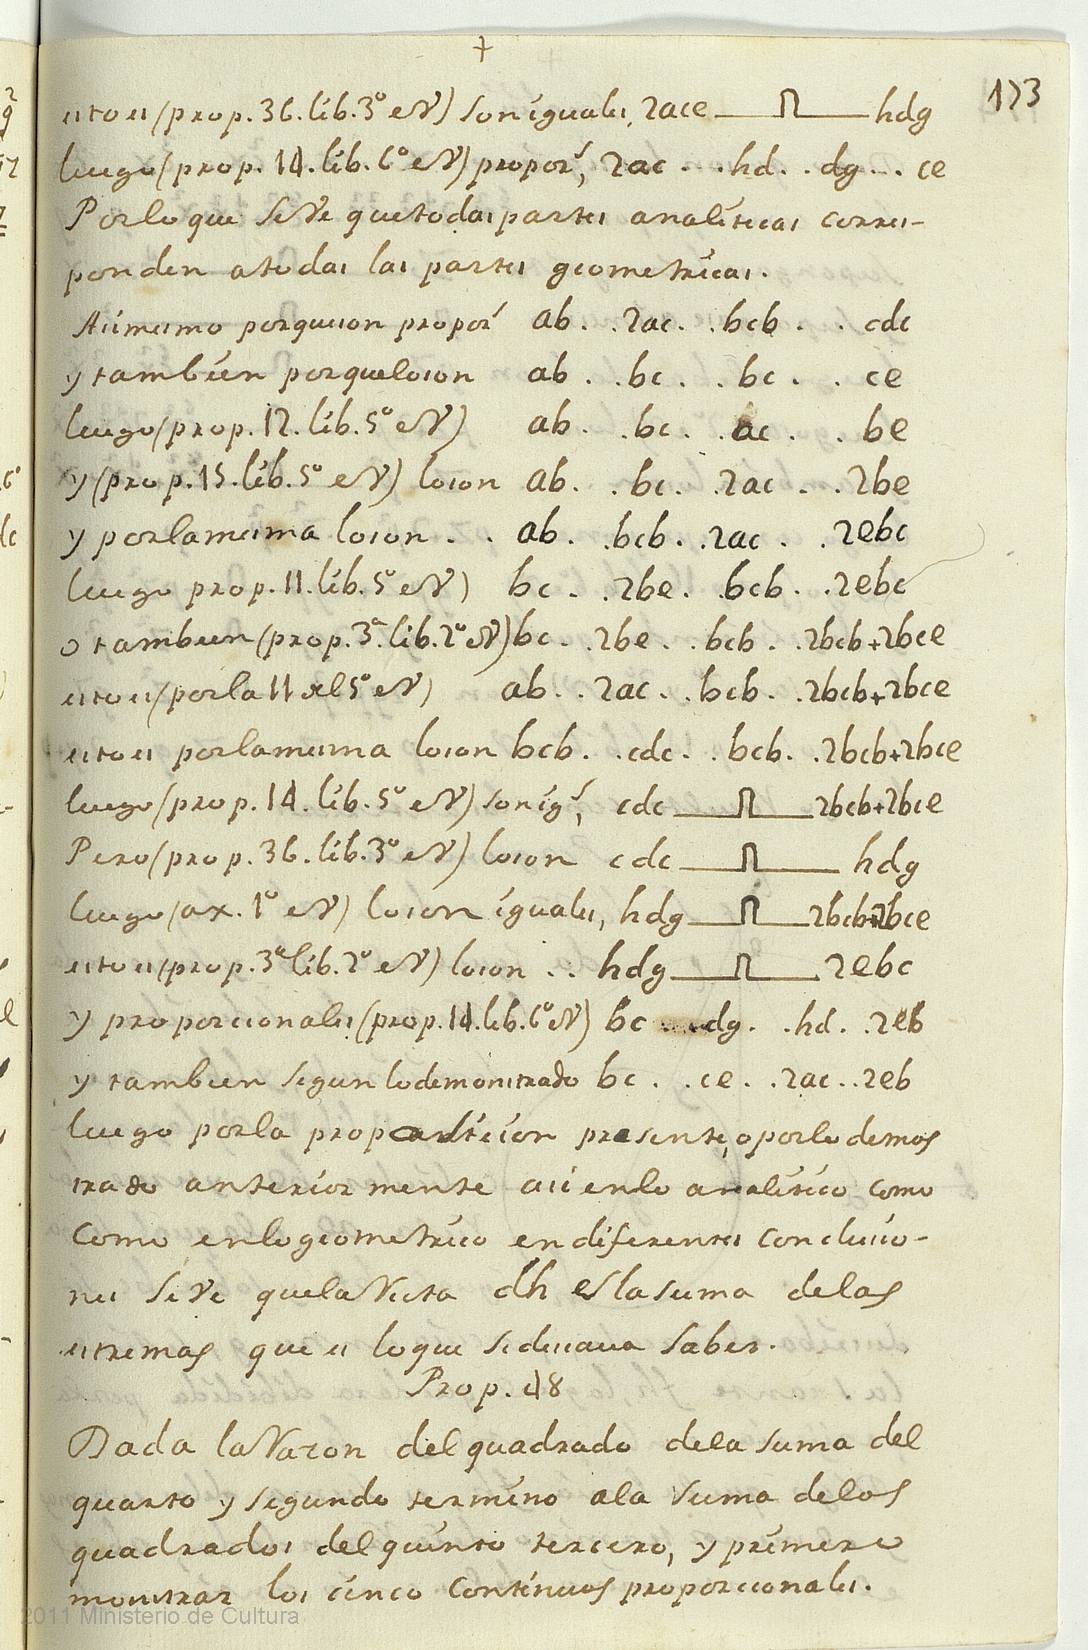 +
173
esto es (prop. 36. lib. 3º eV) son iguales, 2ace ⊓ hdg
luego (prop. 14. lib. 6º eV) propor.s, 2ac . . hd. . dg . . ce
Por lo que se ve que todas partes analiticas corres-
ponden a todas las partes geometricas.
Asimismo porque son propors ab . . 2ac . . bcb . . cdc
y tambien porque lo son ab . . bc . . bc . . ce
luego (prop. 12. lib. 5º eV) ab . . bc . . ac . . be
y (prop. 15. lib. 5º eV) lo son ab . . bc . . 2ac . . 2be
y por la misma lo son . . ab . . bcb . . 2ac . . 2ebc
luego prop. 11. lib. 5º eV) bc . . 2be . . bcb . . 2ebc
o tambien (prop. 3ª. lib. 2º eV) bc . . 2be . . bcb . . 2bcb+2bce
esto es (por la 11 del 5º eV) ab . . 2ac . . bcb . . 2bcb+2bce
esto es por la misma lo son bcb . . cdc . . bcb . . 2bcb+2bce
luego (prop. 14. lib. 5º eV) son ig.s, cdc ⊓ 2bcb+2bce
Pero (prop. 36. lib. 3º eV) lo son cdc ⊓ hdg
luego (ax. 1º eV) lo son iguales, hdg ⊓ 2bcb+2bce
esto es (prop. 3ª lib. 2º eV) lo son . . hdg ⊓ 2ebc
y proporcionales (prop. 14. lib. 6º eV) bc . . dg . . hd . . 2eb
y tambien segun lo demonstrado bc . . ce . . 2ac . . 2eb
luego por la proposition presente, o por lo demos
trado anteriormente asi en lo analitico como
como en lo geometrico en diferentes conclusio-
nes se ve que la Recta dh es la suma de las
estremas que es lo que se deseava saber.
Prop. 48
Dada la Razon del quadrado de la suma del
quarto y segundo termino a la suma de los
quadrados del quinto tercero, y primero
monstrar los cinco continuos proporcionales.
2011 Ministerio de Cultura